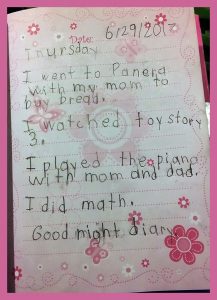 Date: 6/29/2017
Thursday
I went to Panera
with my mom to
buy bread.
I watched toy story
3.
I played the piano
with mom and dad.
I did math.
Good night diary